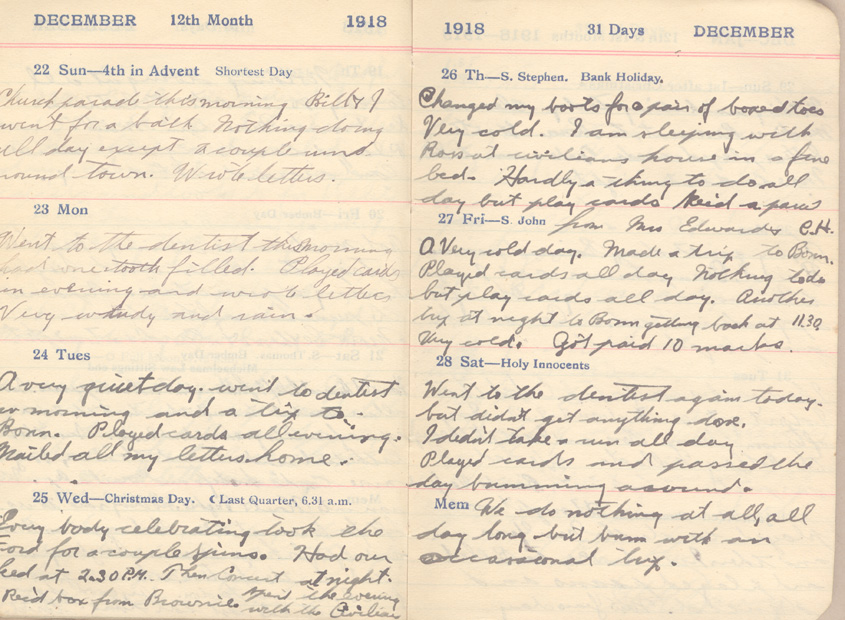 DECEMBER 12th Month 1918
22 Sun—4th in Advent Shortest Day
Church parade this morning Billy & I
went for a bath Nothing doing
all day except a couple runs
round town. Wrote letters.
23 Mon
Went to the dentist this morning
had one tooth filled. Played cards
in evening and wrote letters
Very windy and rain.
24 Tues
A very quiet day. went to dentist
in morning and a trip to
Bonn. Played cards all evening.
Mailed all my letters home.
25 Wed—Christmas Day. ☾ Last Quarter, 6.31 a.m.
Every body celebrating took the
Ford for a couple spins. Had our
feed at 2.30 P.M. Then Concert at night.
Recid box from Brownie. Spent the evening
with the Civilian
1918 31 Days DECEMBER
26 Th—S. Stephen. Bank Holiday.
Changed my boots for a pair of boxed toes
Very cold. I am sleeping with
Ross at civilians house in a fine
bed. Hardly a thing to do all
day but play cards Recid a parcel
from Mrs Edwards C.H.
27 Fri—S. John
A Very cold day. Made a trip to Bonn.
Played cards all day Nothing to do
but play cards all day. Another
trip at night to Bonn getting back at 11.30.
Very cold. Got paid 10 marks.
28 Sat—Holy Innocents
Went to the dentist again today.
but didn't get anything done.
I didn't take a run all day
Played cards and passed the
day bumming around.
Mem We do nothing at all, all
day long but bum with an
occasional trip.